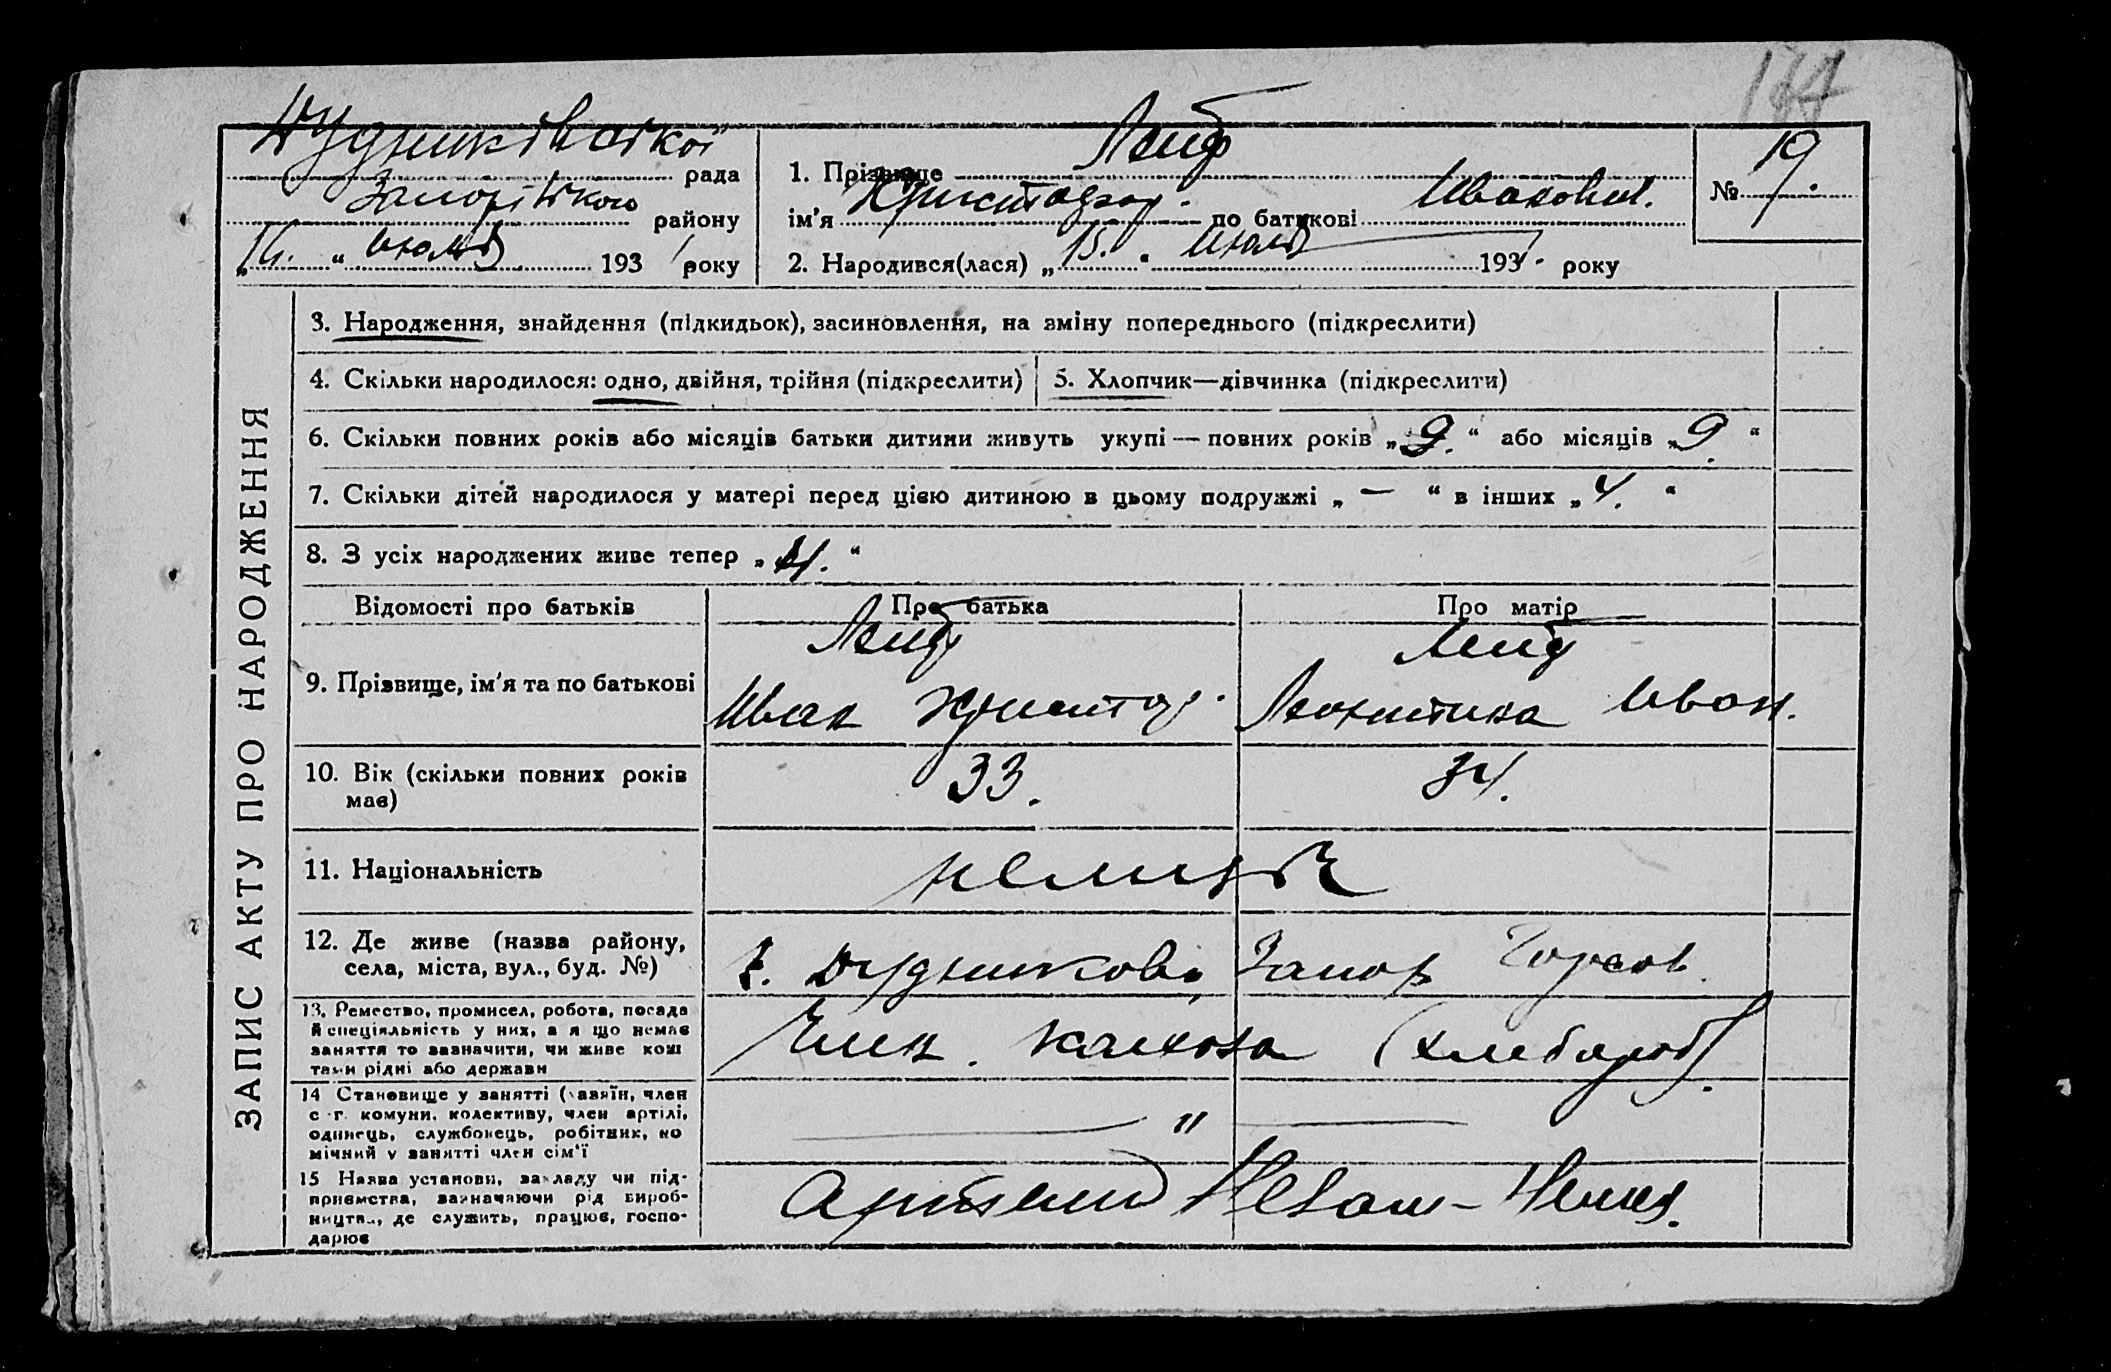 Дудниківської рада
Запорізького району
"16." июля 1931 року
1. Прізвище Лейб
ім'я Христофор. по батькові Иванович.
2. Народився(лася) "15." Июля 1931. року
№ 19.
ЗАПИС АКТУ ПРО НАРОДЖЕННЯ
3. Народження, знайдення (підкидьок), засиновлення, на зміну попереднього (підкреслити)
4. Скільки народилося: одно, двійня, трійня (підкреслити)
5. Хлопчик—дівчинка (підкреслити)
6. Скільки повних років або місяців батьки дитини живуть укупі — повних років "2." або місяців "9."
7. Скільки дітей народилося у матері перед цією дитиною в цьому подружжі " — " в інших "4."
8. З усіх народжених живе тепер "4."
Відомості про батьків Про батька Про матір
9. Прізвище, ім'я та по батькові
Лейб Лейб
Иван Христоф. Иван.
10. Вік (скільки повних років
має)
33. 34.
11. Національність
немцы
12. Де живе (назва району,
села, міста, вул., буд. №)
Дудниково Запор
13. Ремество, промисел, робота, посада
й спеціяльність у них, а я що немає
заняття то зазначити, чи живе кош
тами рідні або держави
Член колхоза (хлебороб).
14 Становище у занятті (хазяїн, член
с-г. комуни, колективу, член артілі,
одинець, службовець, робітник, по
мічний у занятті член сім'ї
— " —
15 Назва установи, закладу чи під-
приємства, зазначаючи рід вироб-
ництва, де служить, працює, госпо-
дарює
Артель